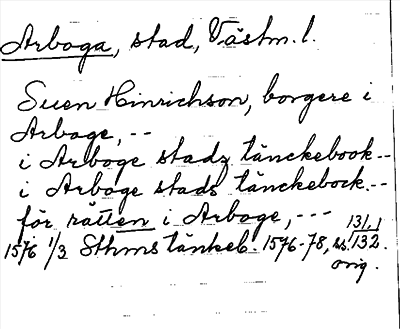 Arboga, stad, Västm.l.
Suen Hinrichson, borgere i
Arboge, --
i Arboge stadz tänckebook --
i Arboge stads tänckebock --
för rätten i Arboge, ---
1576 1/3 Sthms tänkeb. 1576-78, ss. 131, 132.
orig.